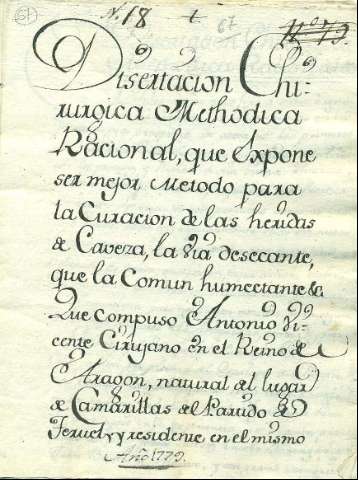 67
N. 18
t
67
N.º 79.
Disertacion Chi-
rurgica Methodica
Racional, que Expone
ser mejor Metodo para
la Curacion de las heridas
de Caveza, la via desecante,
que la Comun humectante &c
Que compuso Antonio Vi-
cente Cirujano en el Reino de
Aragon, natural del lugar
de Camarillas del Partido de
Teruel, y residente en el mismo
Año 1779.